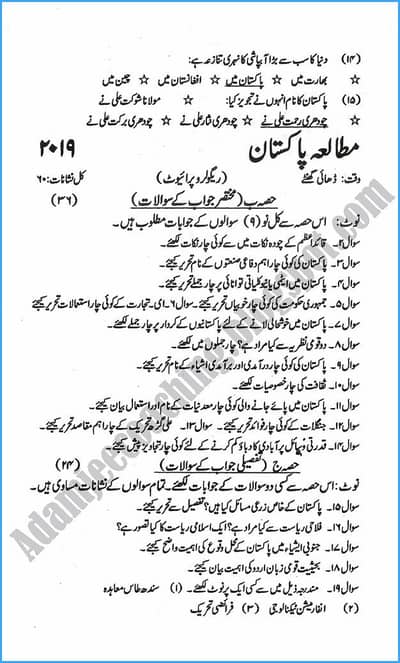 (۱۴) دنیا کا سب سے بڑا آبپاشی کا نہری تنازعہ ہے:
☆ بھارت میں ☆ پاکستان میں ☆ افغانستان میں ☆ چین میں
(۱۵) پاکستان کا نام انہوں نے تجویز کیا: ☆ مولانا شوکت علی نے
☆ چودھری رحمت علی نے ☆ چودھری نثار علی نے ☆ چودھری برکت علی نے
مطالعہ پاکستان ۲۰۱۹
وقت: ڈھائی گھنٹے (ریگولر و پرائیوٹ) کل نشانات: ۶۰
حصہ ب (مختصر جواب کے سوالات) (۳۶)
نوٹ: اس حصہ سے کل نو (۹) سوالوں کے جوابات مطلوب ہیں۔
سوال۲۔ قائداعظم کے چودہ نکات میں سے کوئی چار نکات لکھئے۔
سوال۳۔ پاکستان کی کوئی چار اہم دفاعی صنعتوں کے نام تحریر کیجئے۔
سوال۴۔ پاکستان میں ایٹمی یا نیوکلیائی توانائی پر چار جملے تحریر کیجئے۔
سوال۵۔ جمہوری حکومت کی کوئی چار خوبیاں تحریر کیجئے۔ سوال۶۔ ای۔تجارت کے کوئی چار استعمالات تحریر کیجئے۔
سوال۷۔ پاکستان میں خوشحالی لانے کے لئے پاکستانیوں کے کردار پر چار جملے لکھئے۔
سوال۸۔ دو قومی نظریہ سے کیا مراد ہے؟ چار جملوں میں لکھئے۔
سوال۹۔ پاکستان کی کوئی چار درآمدی اور برآمدی اشیاء کے نام تحریر کیجئے۔
سوال۱۰۔ ثقافت کی چار خصوصیات لکھئے۔
سوال۱۱۔ پاکستان میں پائے جانے والی کوئی چار معدنیات کے نام اور استعمال بیان کیجئے۔
سوال۱۲۔ جنگلات کے کوئی چار فوائد تحریر کیجئے۔ سوال۱۳۔ علی گڑھ تحریک کے چار اہم مقاصد تحریر کیجئے۔
سوال۱۴۔ قدرتی وسائل پر آبادی کا دباؤ کم کرنے کے لئے کوئی چار تجاویز پیش کیجئے۔
حصہ ج (تفصیلی جواب کے سوالات) (۲۴)
نوٹ: اس حصہ سے کسی دو سوالات کے جوابات لکھئے۔ تمام سوالوں کے نشانات مساوی ہیں۔
سوال۱۵۔ پاکستان کے خاص زرعی مسائل کیا ہیں؟ تفصیل سے تحریر کیجئے۔
سوال۱۶۔ فلاحی ریاست سے کیا مراد ہے؟ ایک اسلامی ریاست کا کیا تصور ہے؟
سوال۱۷۔ جنوبی ایشیاء میں پاکستان کے محل وقوع کی اہمیت واضح کیجئے۔
سوال۱۸۔ بحیثیت قومی زبان اردو کی اہمیت بیان کیجئے۔
سوال۱۹۔ مندرجہ ذیل میں سے کسی ایک پر نوٹ لکھئے۔ (۱) سندھ طاس معاہدہ
(۲) انفارمیشن ٹیکنالوجی (۳) فرائضی تحریک
Adamjeecoaching.blogspot.com